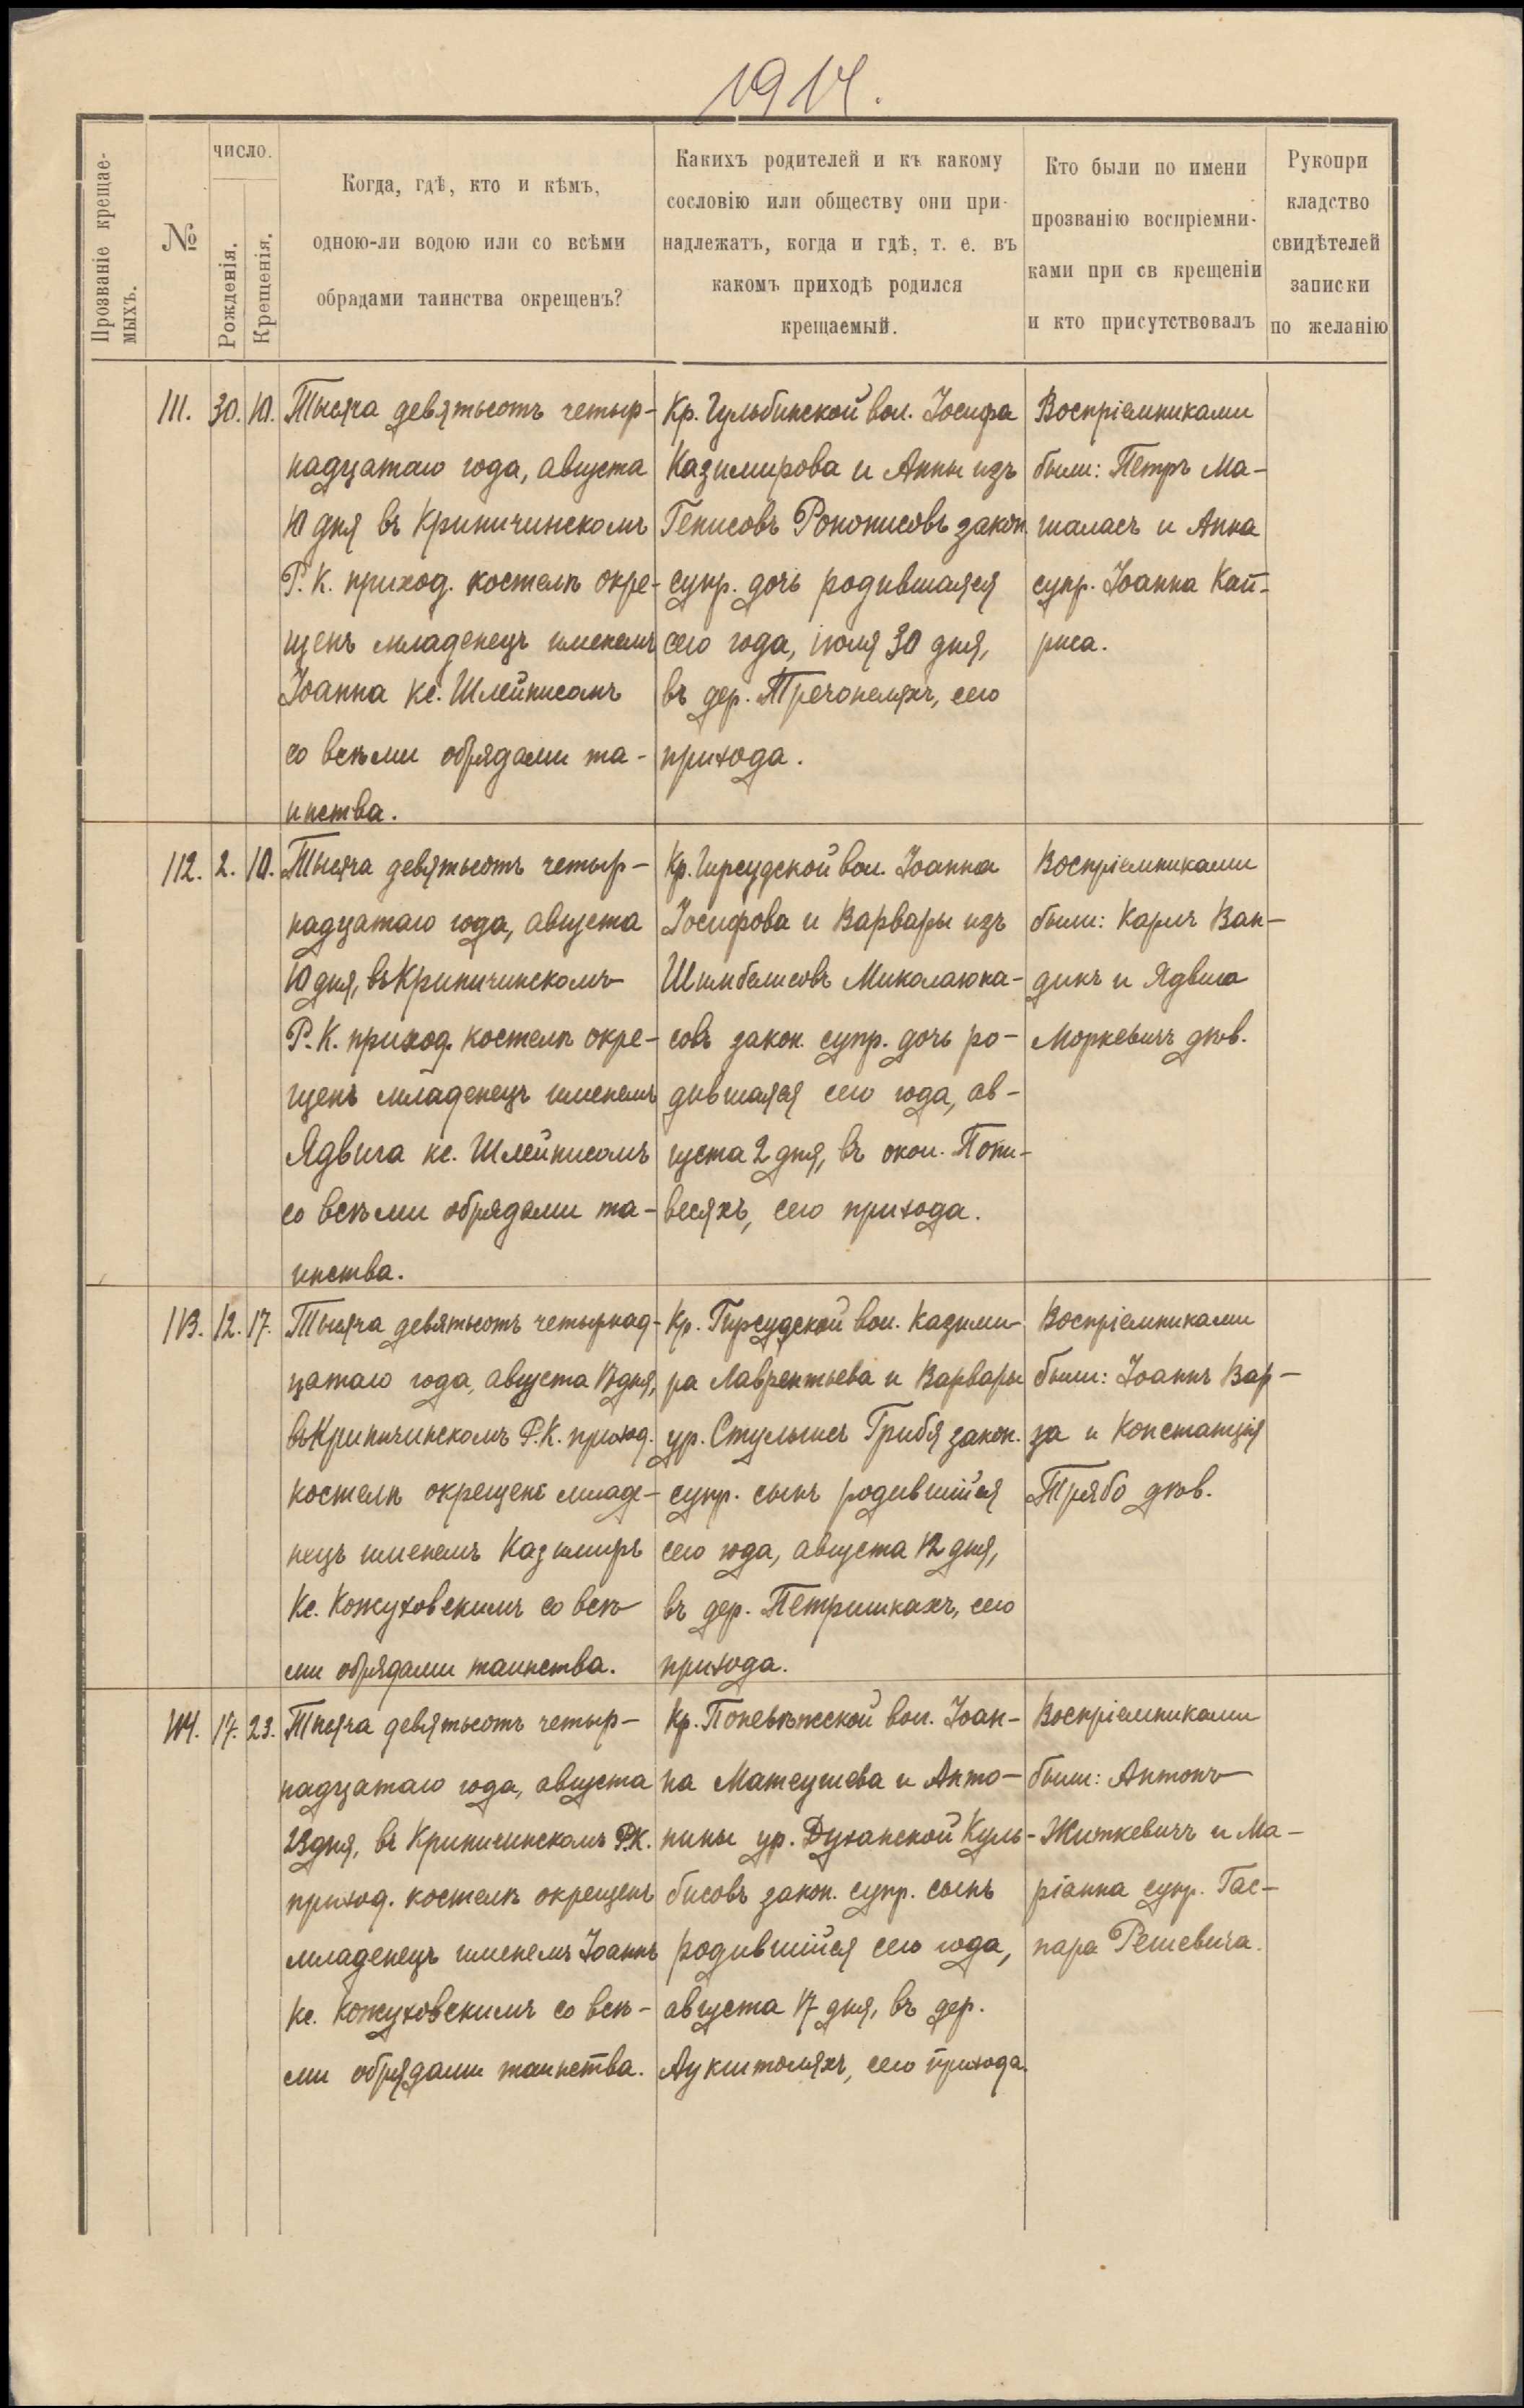 1914.
Прозваніе крещае-
мыхъ.
№
число.
Рожденія.
Крещенія.
Когда, гдѣ, кто и кѣмъ,
одною-ли водою или со всѣми
обрядами таинства окрещенъ?
Какихъ родителей и къ какому
сословію или обществу они при-
надлежатъ, когда и гдѣ, т. е. въ
какомъ приходѣ родился
крещаемый.
Кто были по имени
прозванію воспріемни-
ками при св крещеніи
и кто присутствовалъ
Рукопри
кладство
свидѣтелей
записки
по желанію
111. 30. 10.
Тысяча девятьсотъ четыр-
надцатаго года, августа
10 дня въ Криничинскомъ
Р. К. приход. костелѣ окре-
щенъ младенецъ именемъ
Іоанна кс. Шлейнисомъ
со всѣми обрядами та-
инства.
Кр. Гульбинской вол. Іосифа
Казимирова и Анны изъ
Генисовъ Рононисовъ закон.
супр. дочь родившаяся
сего года, іюля 30 дня,
въ дер. Тречонеляхъ, сего
прихода.
Воспріемниками
были: Петръ Ма-
шаласъ и Анна
супр. Іоанна Кай-
риса.
112. 2. 10.
Тысяча девятьсотъ четыр-
надцатаго года, августа
10 дня, въ Криничинскомъ
Р. К. приход. костелѣ окре-
щенъ младенецъ именемъ
Ядвига кс. Шлейнисомъ
со всѣми обрядами та-
инства.
Кр. Гирсудской вол. Іоанна
Іосифова и Варвары изъ
Шимбелисовъ Миколаюна-
совъ закон. супр. дочь ро-
дившаяся сего года, ав-
густа 2 дня, въ окол. Поти-
весяхъ, сего прихода.
Воспріемниками
были: Карлъ Ван-
динъ и Ядвига
Моркевичъ дѣв.
113. 12. 17.
Тысяча девятьсотъ четырнад-
цатаго года, августа 17 дня,
въ Криничинскомъ Р. К. приход.
костелѣ окрещенъ младе-
нецъ именемъ Казимиръ
Кс. Кожуховскимъ со всѣ-
ми обрядами таинства.
Кр. Гирсудской вол. Казими-
ра Лаврентьева и Варвары
ур. Стульгисъ Грибя закон.
супр. сынъ родившійся
сего года, августа 12 дня,
въ дер. Петришкахъ, сего
прихода.
Воспріемниками
были: Іоаннъ Вар-
за и Констанція
Трябо дѣв.
114. 17. 23.
Тысяча девятьсотъ четыр-
надцатаго года, августа
23 дня, въ Криничинскомъ Р.К.
приход. костелѣ окрещенъ
младенецъ именемъ Іоаннъ
Кс. Кожуховскимъ со всѣ-
ми обрядами таинства.
Кр. Поневѣжской вол. Іоан-
на Матеушева и Анто-
нины ур. Духанской Куль-
бисовъ закон. супр. сынъ
родившійся сего года,
августа 17 дня, въ дер.
Аукштоляхъ, сего прихода.
Воспріемниками
были: Антонъ
Житкевичъ и Ма-
ріанна супр. Гас-
пара Решевича.